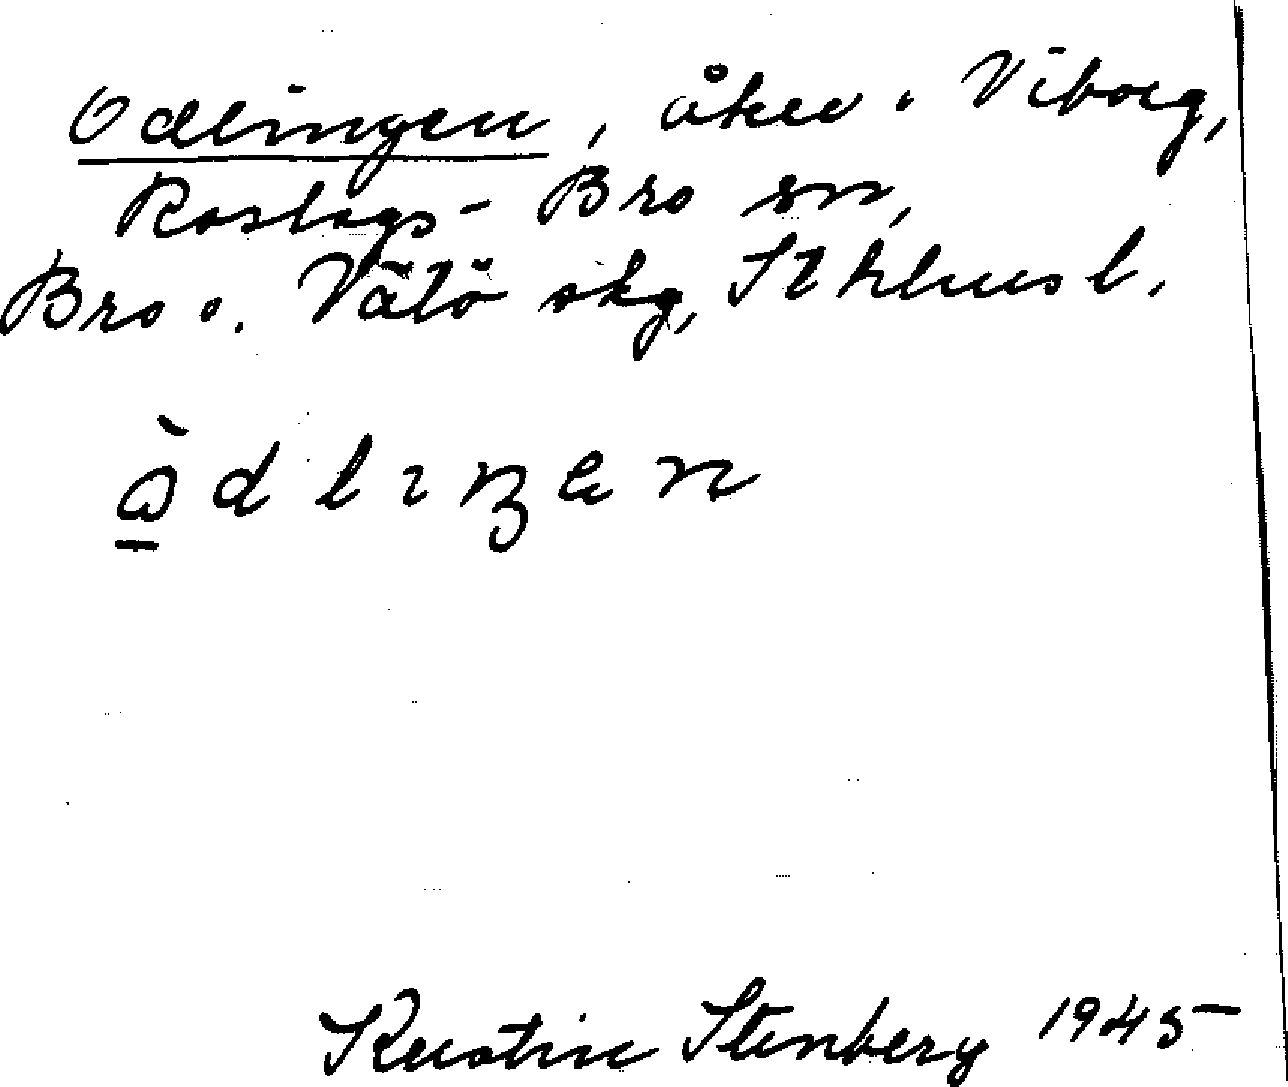 Odlingen, åker. Viborg,
Roslags-Bro sn,
Bro o. Vätö skg, Sthlms l.
ò̱dlıŋen
Kerstin Stenberg 1945